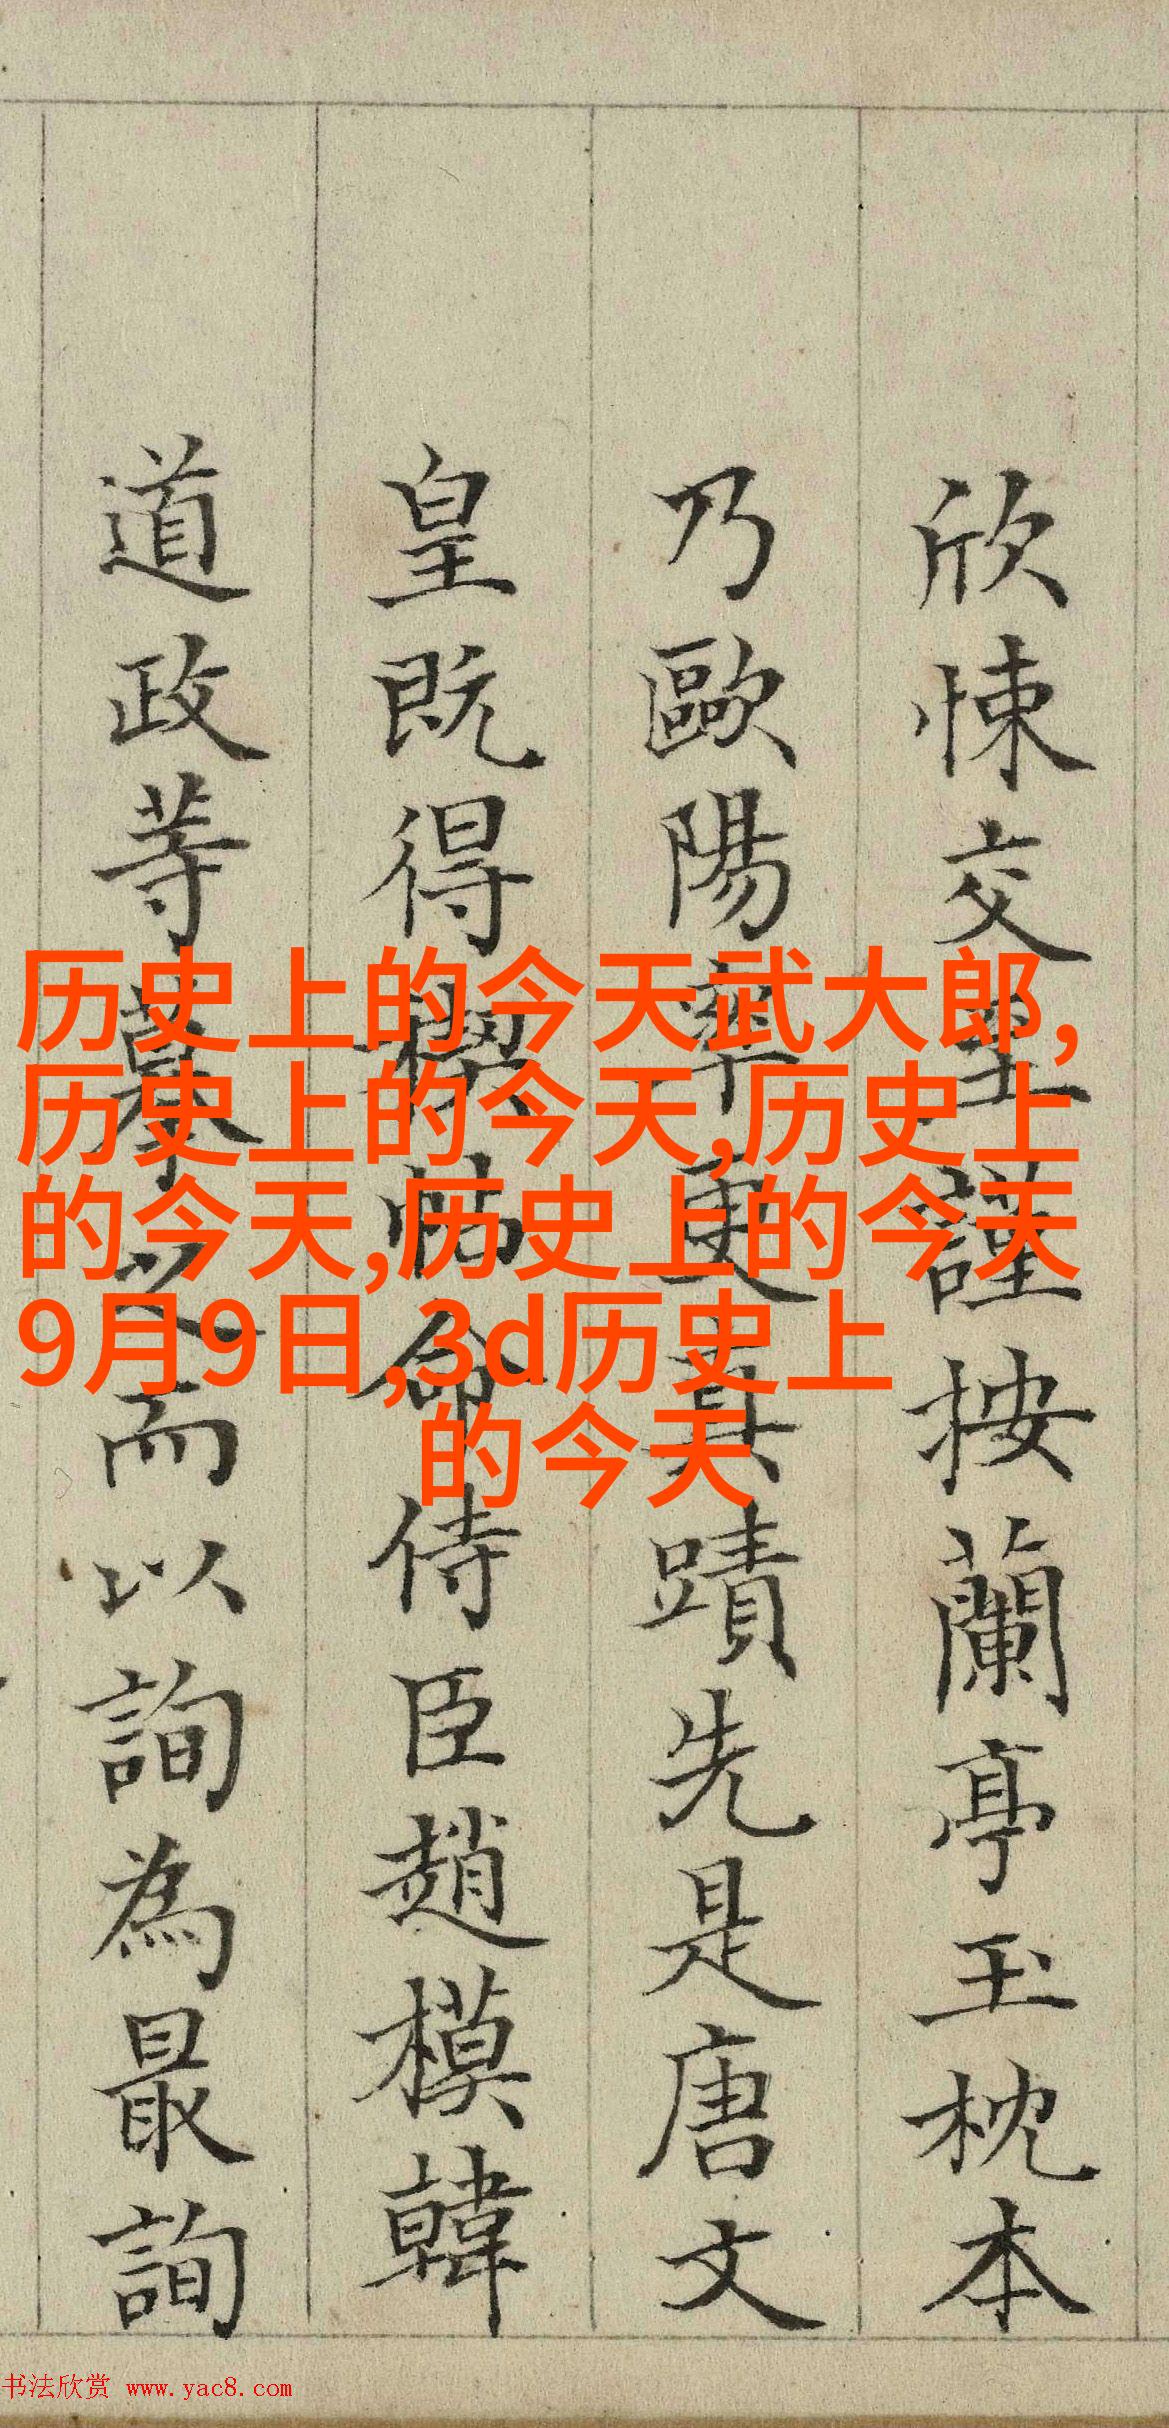 欣悚交至謹按蘭亭玉枕本
乃歐陽率更真蹟先是唐文
皇既得禊帖命侍臣趙模韓
道政等摹之而以詢為最詢
历史上的今天武大郎,
历史上的今天,历史上
的今天,历史上的今天
9月9日,3d历史上
的今天
书法欣赏 www.yac8.com